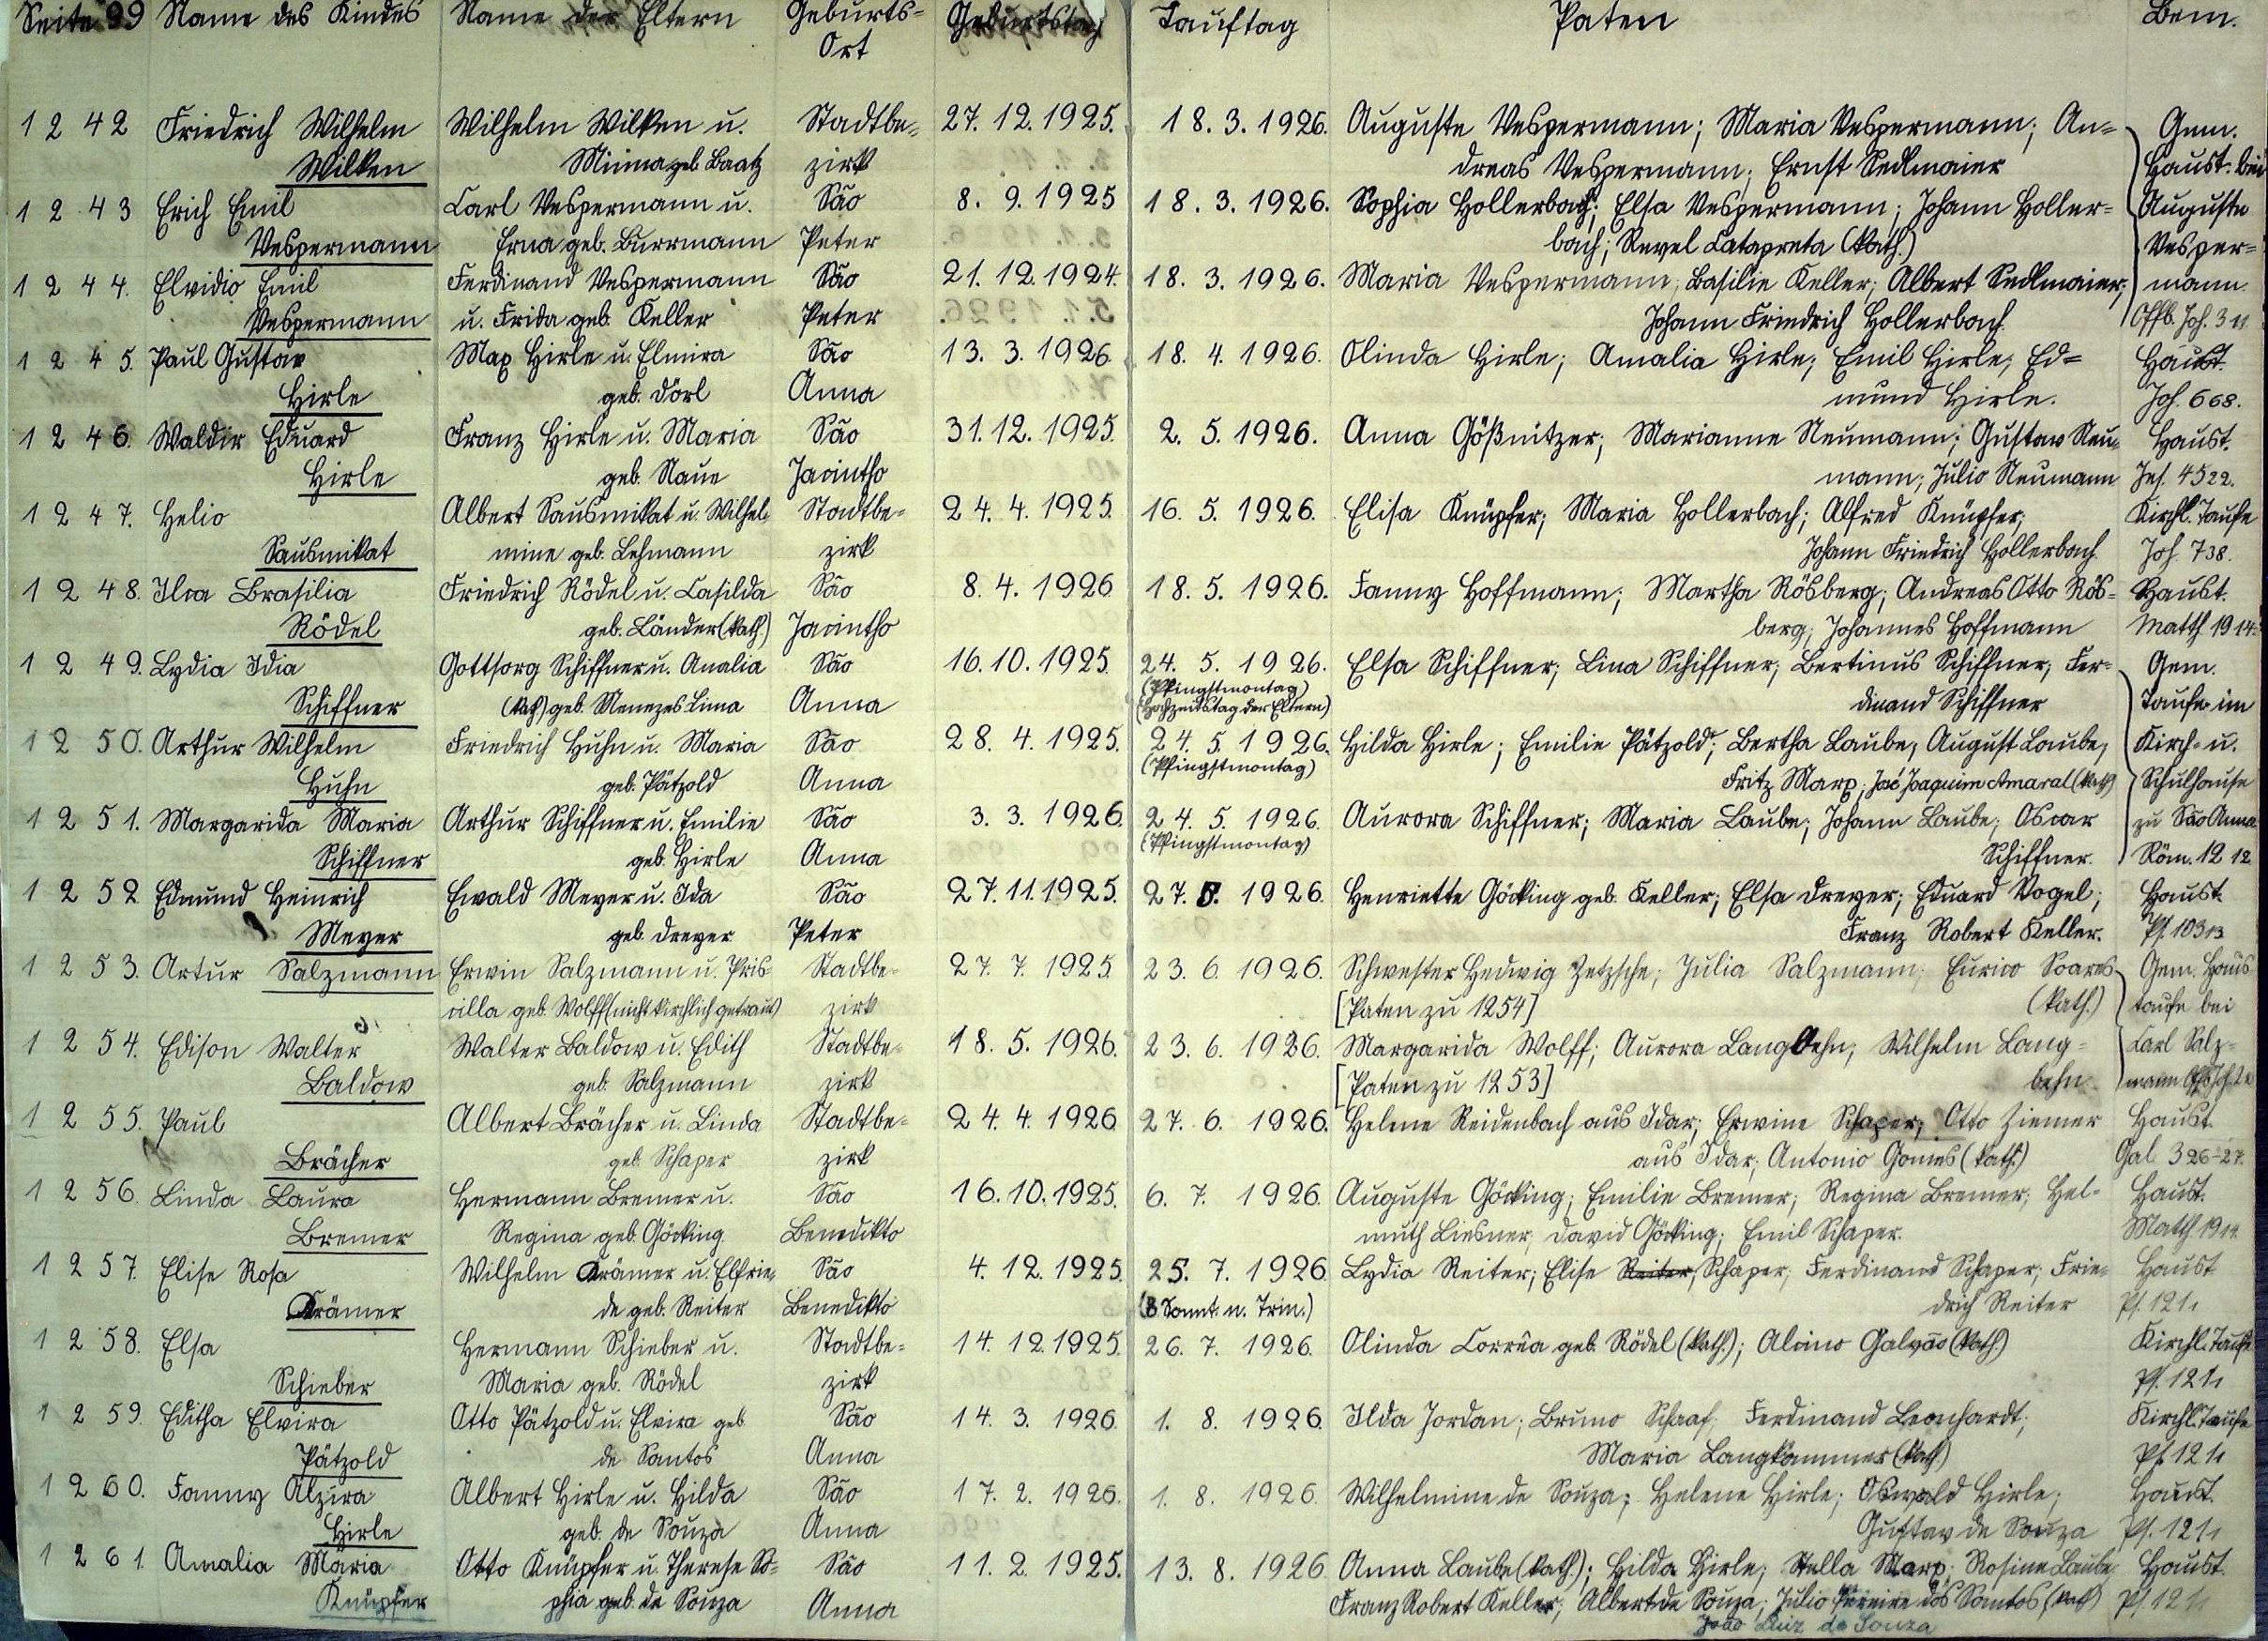 Seite 99 Name des Kindes Name der Eltern Geburts= Geburtstag Tauftag Paten Bem.
Ort
1242 Friedrich Wilhelm Wilhelm Wilken u. Stadtbe= 27. 12. 1925. 18. 3. 1926. Auguste Vespermann; Maria Vespermann; An= Gem.
Wilken Minna geb. Baatz zirk dreas Vespermann; Ernst Sedlmaier Haust. bei
1243 Erich Emil Carl Vespermann u. São 8. 9. 1925 18. 3. 1926. Sophia Hollerbach; Elsa Vespermann; Johann Holler= Auguste
Vespermann Erna geb. Burrmann Peter bach; Revel Catapreta (kath.) Vesper=
1244. Elvidio Emil Ferdinand Vespermann São 21. 12. 1924. 18. 3. 1926. Maria Vespermann; Basilie Keller; Albert Sedlmaier; mann.
Vespermann u. Frida geb. Keller Peter Johann Friedrich Hollerbach. Offb. Joh. 3 11
1245. Paul Gustav Max Hirle u. Elmira São 13. 3. 1926. 18. 4. 1926. Olinda Hirle; Amalia Hirle; Emil Hirle; Ed= Haust.
Hirle geb. Dörl Anna mund Hirle. Joh. 6 68.
1246. Waldir Eduard Franz Hirle u. Maria São 31. 12. 1925. 2. 5. 1926. Anna Gößnitzer; Marianne Neumann; Gustav Neu= Haust.
Hirle geb. Naue Jacintho mann; Julio Neumann Jes. 45 22.
1247. Helio Albert Sausmikat u. Wilhel= Stadtbe= 24. 4. 1925. 16. 5. 1926. Elisa Knüpfer; Maria Hollerbach; Alfred Knüpfer; Kirchl. Taufe
Sausmikat mine geb. Lehmann zirk Johann Friedrich Hollerbach. Joh. 7 38.
1248. Ilca Brasilia Friedrich Rödel u. Casilda São 8. 4. 1926 18. 5. 1926. Fanny Hoffmann; Martha Rösberg; Andreas Otto Rös= Haust.
Rödel geb. Länder (kath.) Jacintho berg; Johannes Hoffmann Matth 19 14.
1249. Lydia Idia Gottsorg Schiffner u. Analia São 16. 10. 1925. 24. 5. 1926. Elsa Schiffner; Lina Schiffner; Bertinus Schiffner; Fer= Gem.
Schiffner (kath) geb. Menezes Lima Anna (Pfingstmontag) (Hochzeitstag der Eltern) dinand Schiffner Taufe im
1250. Arthur Wilhelm Friedrich Huhn u. Maria São 28. 4. 1925. 24. 5. 1926. Hilda Hirle; Emilie Pätzold; Bertha Laube; August Laube; Kirch= u.
Huhn geb. Pätzold Anna (Pfingstmontag) Fritz Marx; José Joaquim Amaral (kath) Schulhause
1251. Margarida Maria Arthur Schiffner u. Emilie São 3. 3. 1926. 24. 5. 1926. Aurora Schiffner; Maria Laube; Johann Laube; Oscar zu São Anna
Schiffner geb. Hirle Anna (Pfingstmontag) Schiffner. Röm. 12 12
1252 Edmund Heinrich Ewald Meyer u. Ida São 27. 11. 1925. 27. 1926. Henriette Göcking geb. Keller; Elsa Dreyer; Eduard Vogel; Haust.
Meyer geb. Dreyer Peter Franz Robert Keller. Ps. 103 13
1253. Artur Salzmann Erwin Salzmann u. Pris= Stadtbe= 27. 7. 1925 23. 6. 1926. Schwester Hedwig Zetzsche; Julia Salzmann; Eurico Soares Gem. Haus
cilla geb. Wolff (nicht kirchlich getraut) zirk [Paten zu 1254] (kath.) taufe bei
1254. Edison Walter Walter Baldow u. Edith Stadtbe= 18. 5. 1926. 23. 6. 1926. Margarida Wolff; Aurora Langbehn; Wilhelm Lang= Carl Salz=
Baldow geb. Salzmann zirk [Paten zu 1253] behn mann
1255. Paul Albert Brächer u. Linda Stadtbe= 24. 4. 1926 27. 6. 1926. Helene Reidenbach aus Idar; Erwine Schaper; Otto Ziemer Haust.
Brächer geb. Schaper zirk aus Idar; Antonio Gomes (kath.) Gal. 3 26-27.
1256. Linda Laura Hermann Bremer u. São 16. 10. 1925. 6. 7. 1926. Auguste Göcking; Emilie Bremer; Regina Bremer; Hel= Haust.
Bremer Regina geb. Göcking Benedikto muth Liesner; David Göcking; Emil Schaper. Matth 19 14.
1257. Elise Rosa Wilhelm Krämer u. Elfrie= São 4. 12. 1925. 25. 7. 1926 Lydia Reiter; Elise Reiter, Schaper; Ferdinand Schaper; Frie= Haust
Krämer de geb. Reiter Benedikto (8 Sonnt. n. Trin.) drich Reiter Ps. 121 1
1258. Elsa Hermann Schieber u. Stadtbe= 14. 12. 1925. 26. 7. 1926. Olinda Corrêa geb. Rödel (kath.); Alcino Galvão (kath.) Kirchl. Taufe
Schieber Maria geb. Rödel zirk Ps. 121 1
1259. Editha Elvira Otto Pätzold u. Elvira geb. São 14. 3. 1926. 1. 8. 1926. Ilda Jordan; Bruno Schaaf; Ferdinand Leonhardt; Kirchl. Taufe
Pätzold de Santos Anna Maria Langkammer (kath) Ps. 121 1
1260. Fanny Alzira Albert Hirle u. Hilda São 17. 2. 1926. 1. 8. 1926. Wilhelmine de Souza; Helene Hirle; Oswald Hirle; Haust.
Hirle geb. de Souza Anna Gustav de Souza Ps. 121 1
1261. Amalia Maria Otto Knüpfer u. Therese So= São 11. 2. 1925. 13. 8. 1926 Anna Laube (kath.); Hilda Hirle; Stella Marx; Rosine Laube Haust.
Knüpfer phia geb. de Souza Anna Franz Robert Keller; Albert de Souza; Julio Pereira dos Santos (kath) Ps. 121 1
João Luiz de Souza